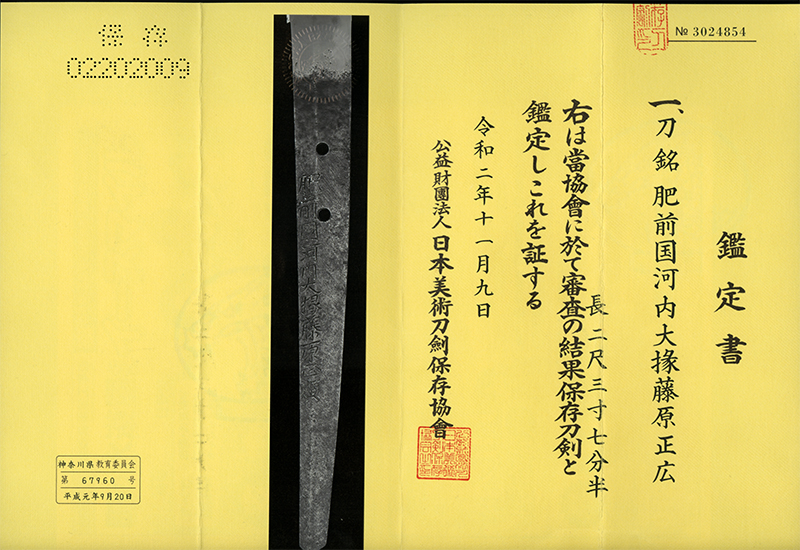 № 3024854
鑑定書
一、刀 銘 肥前国河内大掾藤原正広
長 二尺三寸七分半
右は當協會に於て審査の結果保存刀剣と
鑑定しこれを証する
令和二年十一月九日
公益財團法人 日本美術刀劍保存協會
保存
02202009
神奈川県教育委員会
第 67960 号
平成元年9月20日